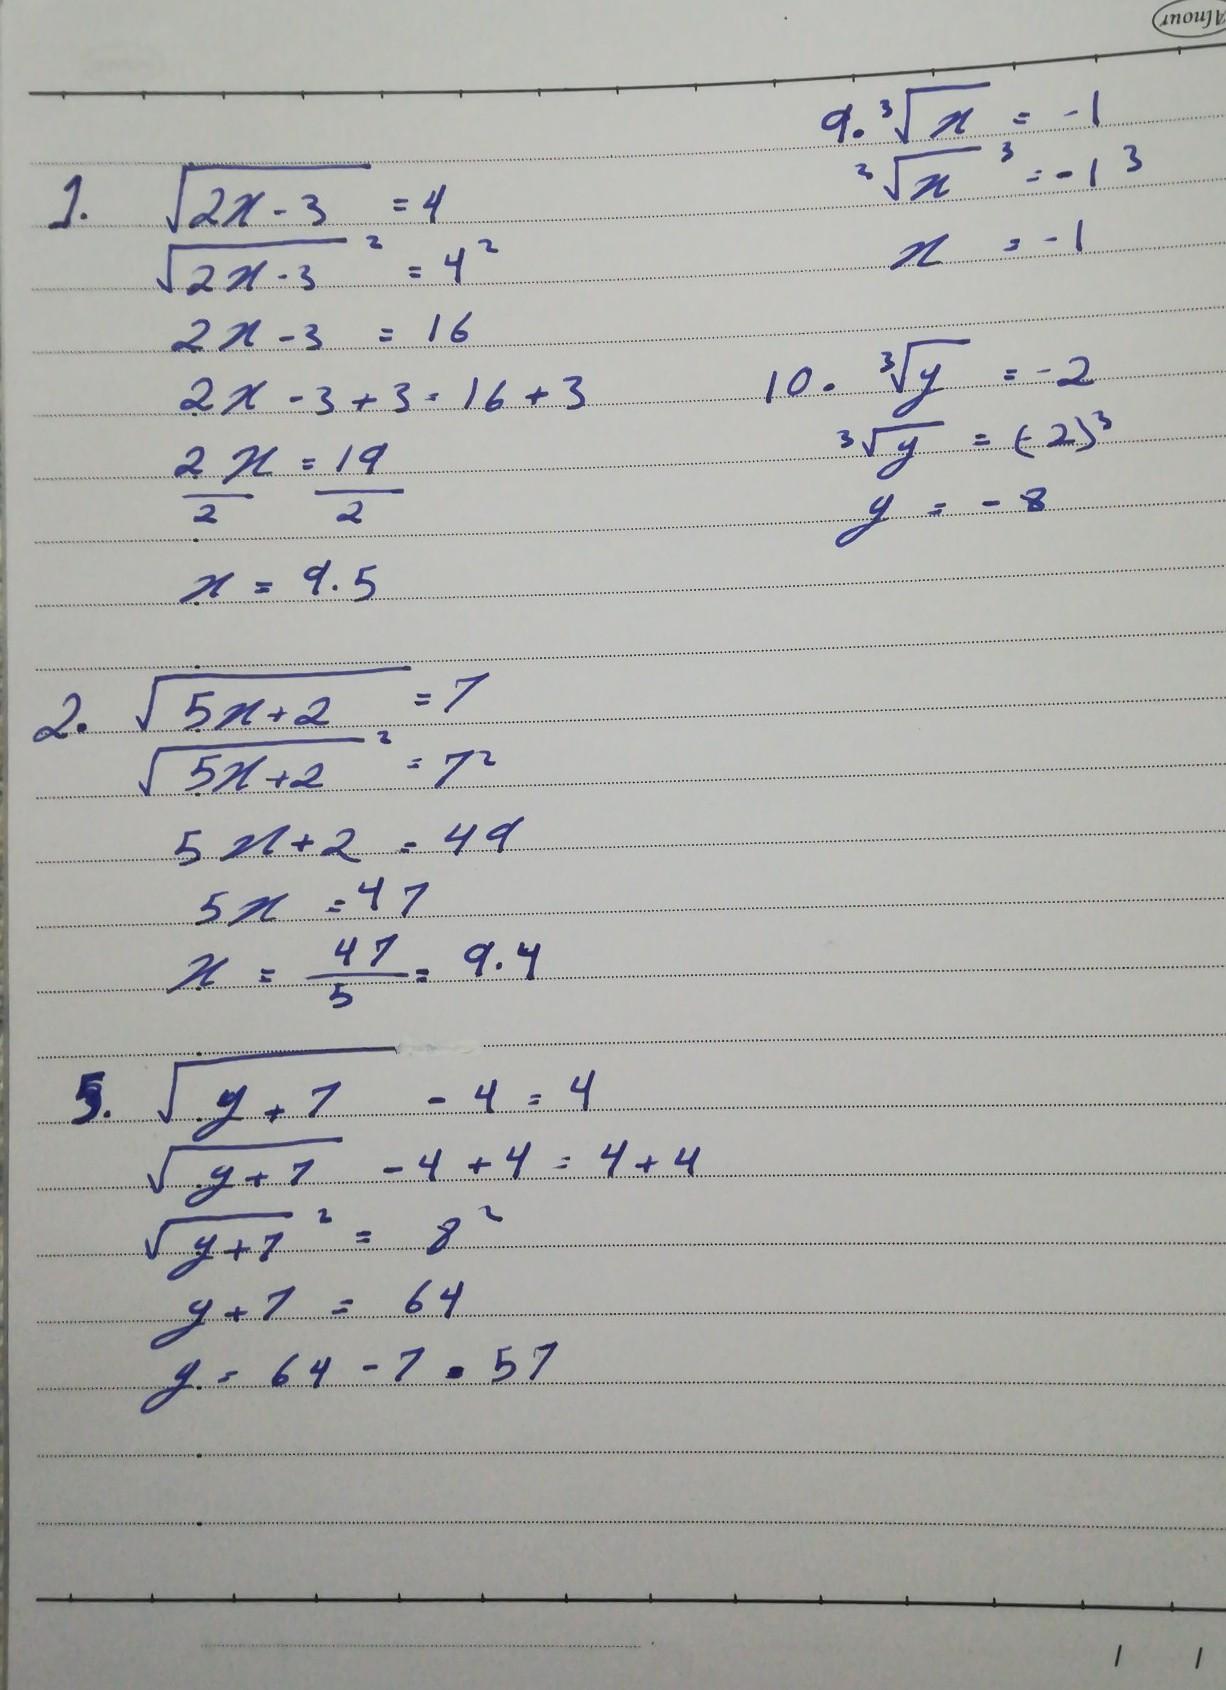 Alnour
1. √2x-3 = 4
√2x-3 ² = 4²
2x-3 = 16
2x-3+3 = 16+3
2x/2 = 19/2
x = 9.5
2. √5x+2 = 7
√5x+2 ² = 7²
5x+2 = 49
5x = 47
x = 47/5 = 9.4
5. √y+7 - 4 = 4
√y+7 -4+4 = 4+4
√y+7 ² = 8²
y+7 = 64
y = 64-7 = 57
9. ³√x = -1
³√x ³ = -1³
x = -1
10. ³√y = -2
³√y = (-2)³
y = -8
/ /